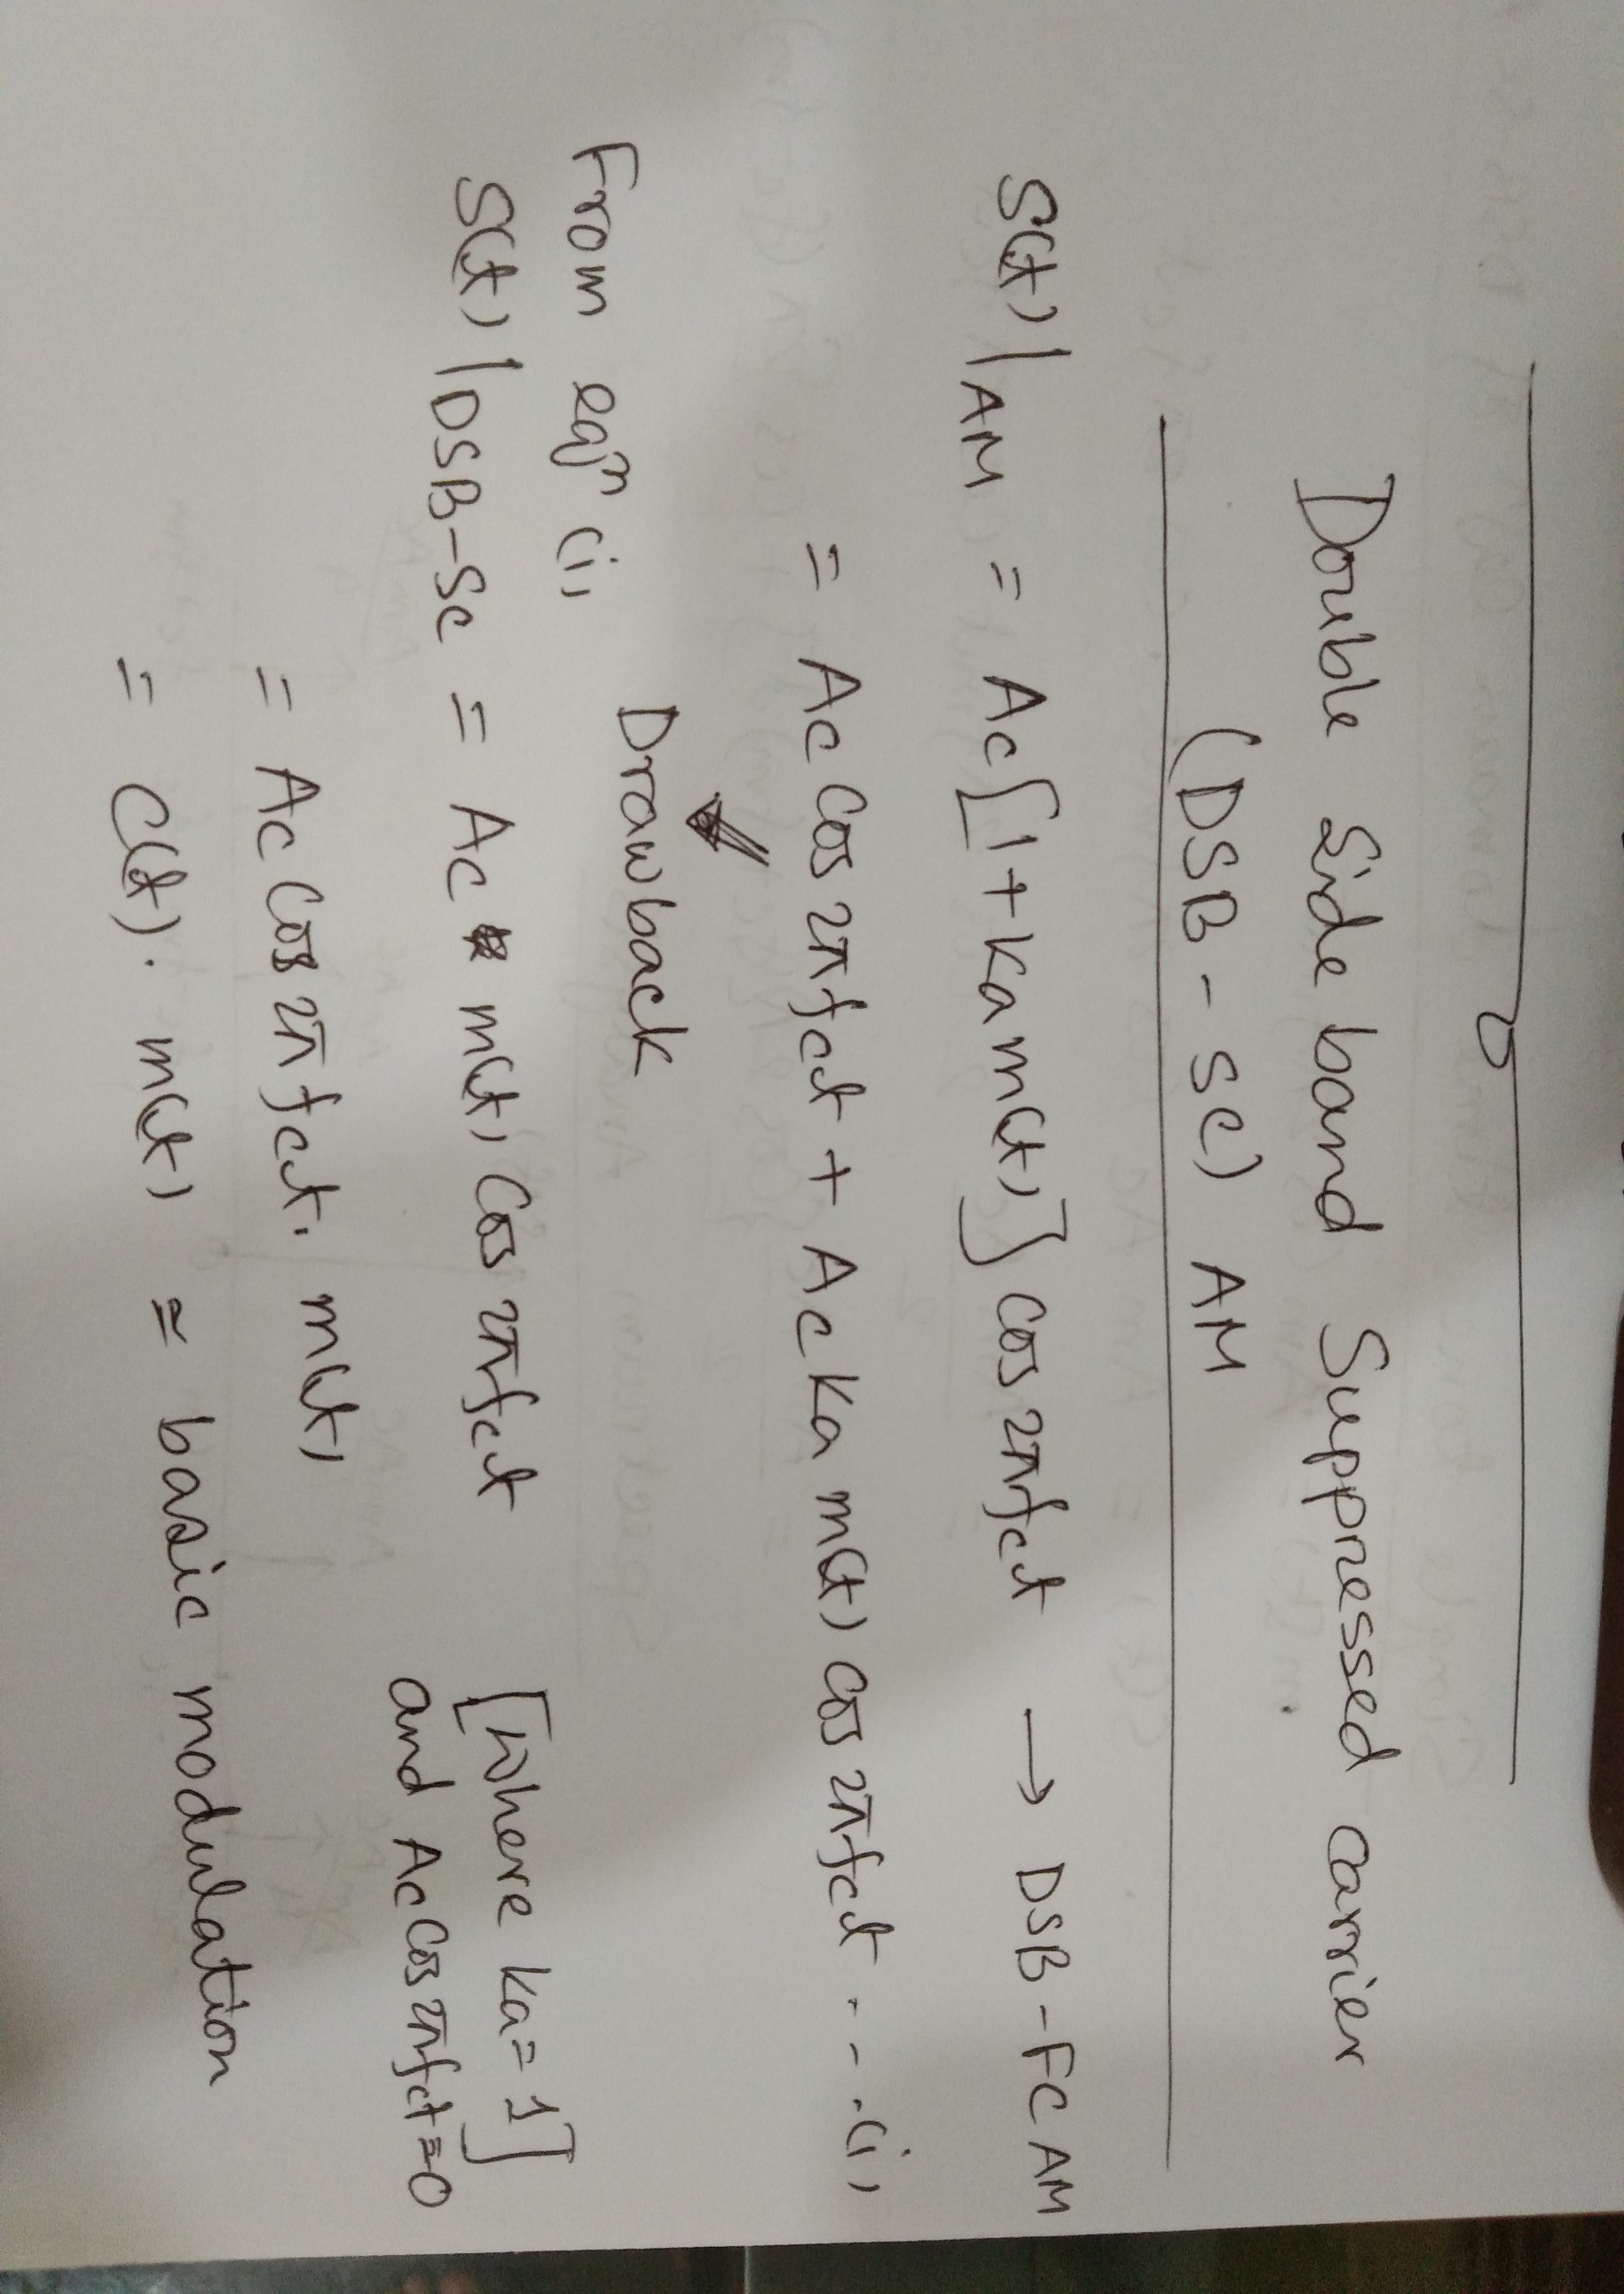 Double Side band Suppressed carrier
(DSB-SC) AM
S(t)|AM = Ac[1+Ka m(t)] Cos 2πfct → DSB-FC AM
= Ac Cos 2πfct + Ac Ka m(t) Cos 2πfct - - - (i)
Drawback
From eqn (i)
S(t)|DSB-SC = Ac m(t) Cos 2πfct [Where Ka=1]
and Ac Cos 2πfct=0
= Ac Cos 2πfct. m(t)
= C(t). m(t) = basic modulation